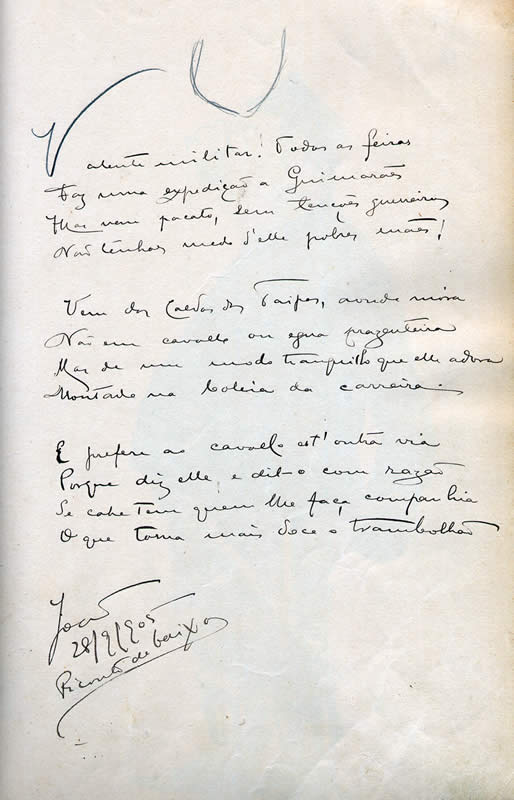 Valente militar! Todas as feiras
Faz uma expedição a Guimarães
Mas vem pacato, sem tenções guerreiras
Não tenhas medo d'elle pobres mães!
Vem das Caldas das Taipas, aonde móra
Não em cavallo ou egua prazenteira
Mas de um modo tranquillo que elle adora
Montado na boleia da carreira.
E prefere ao cavallo est'outra via
Porque diz elle, e dil-o com razão
Se cahe tem quem lhe faça companhia
O que torna mais doce o trambolhão
João
28/9/905
de baixo